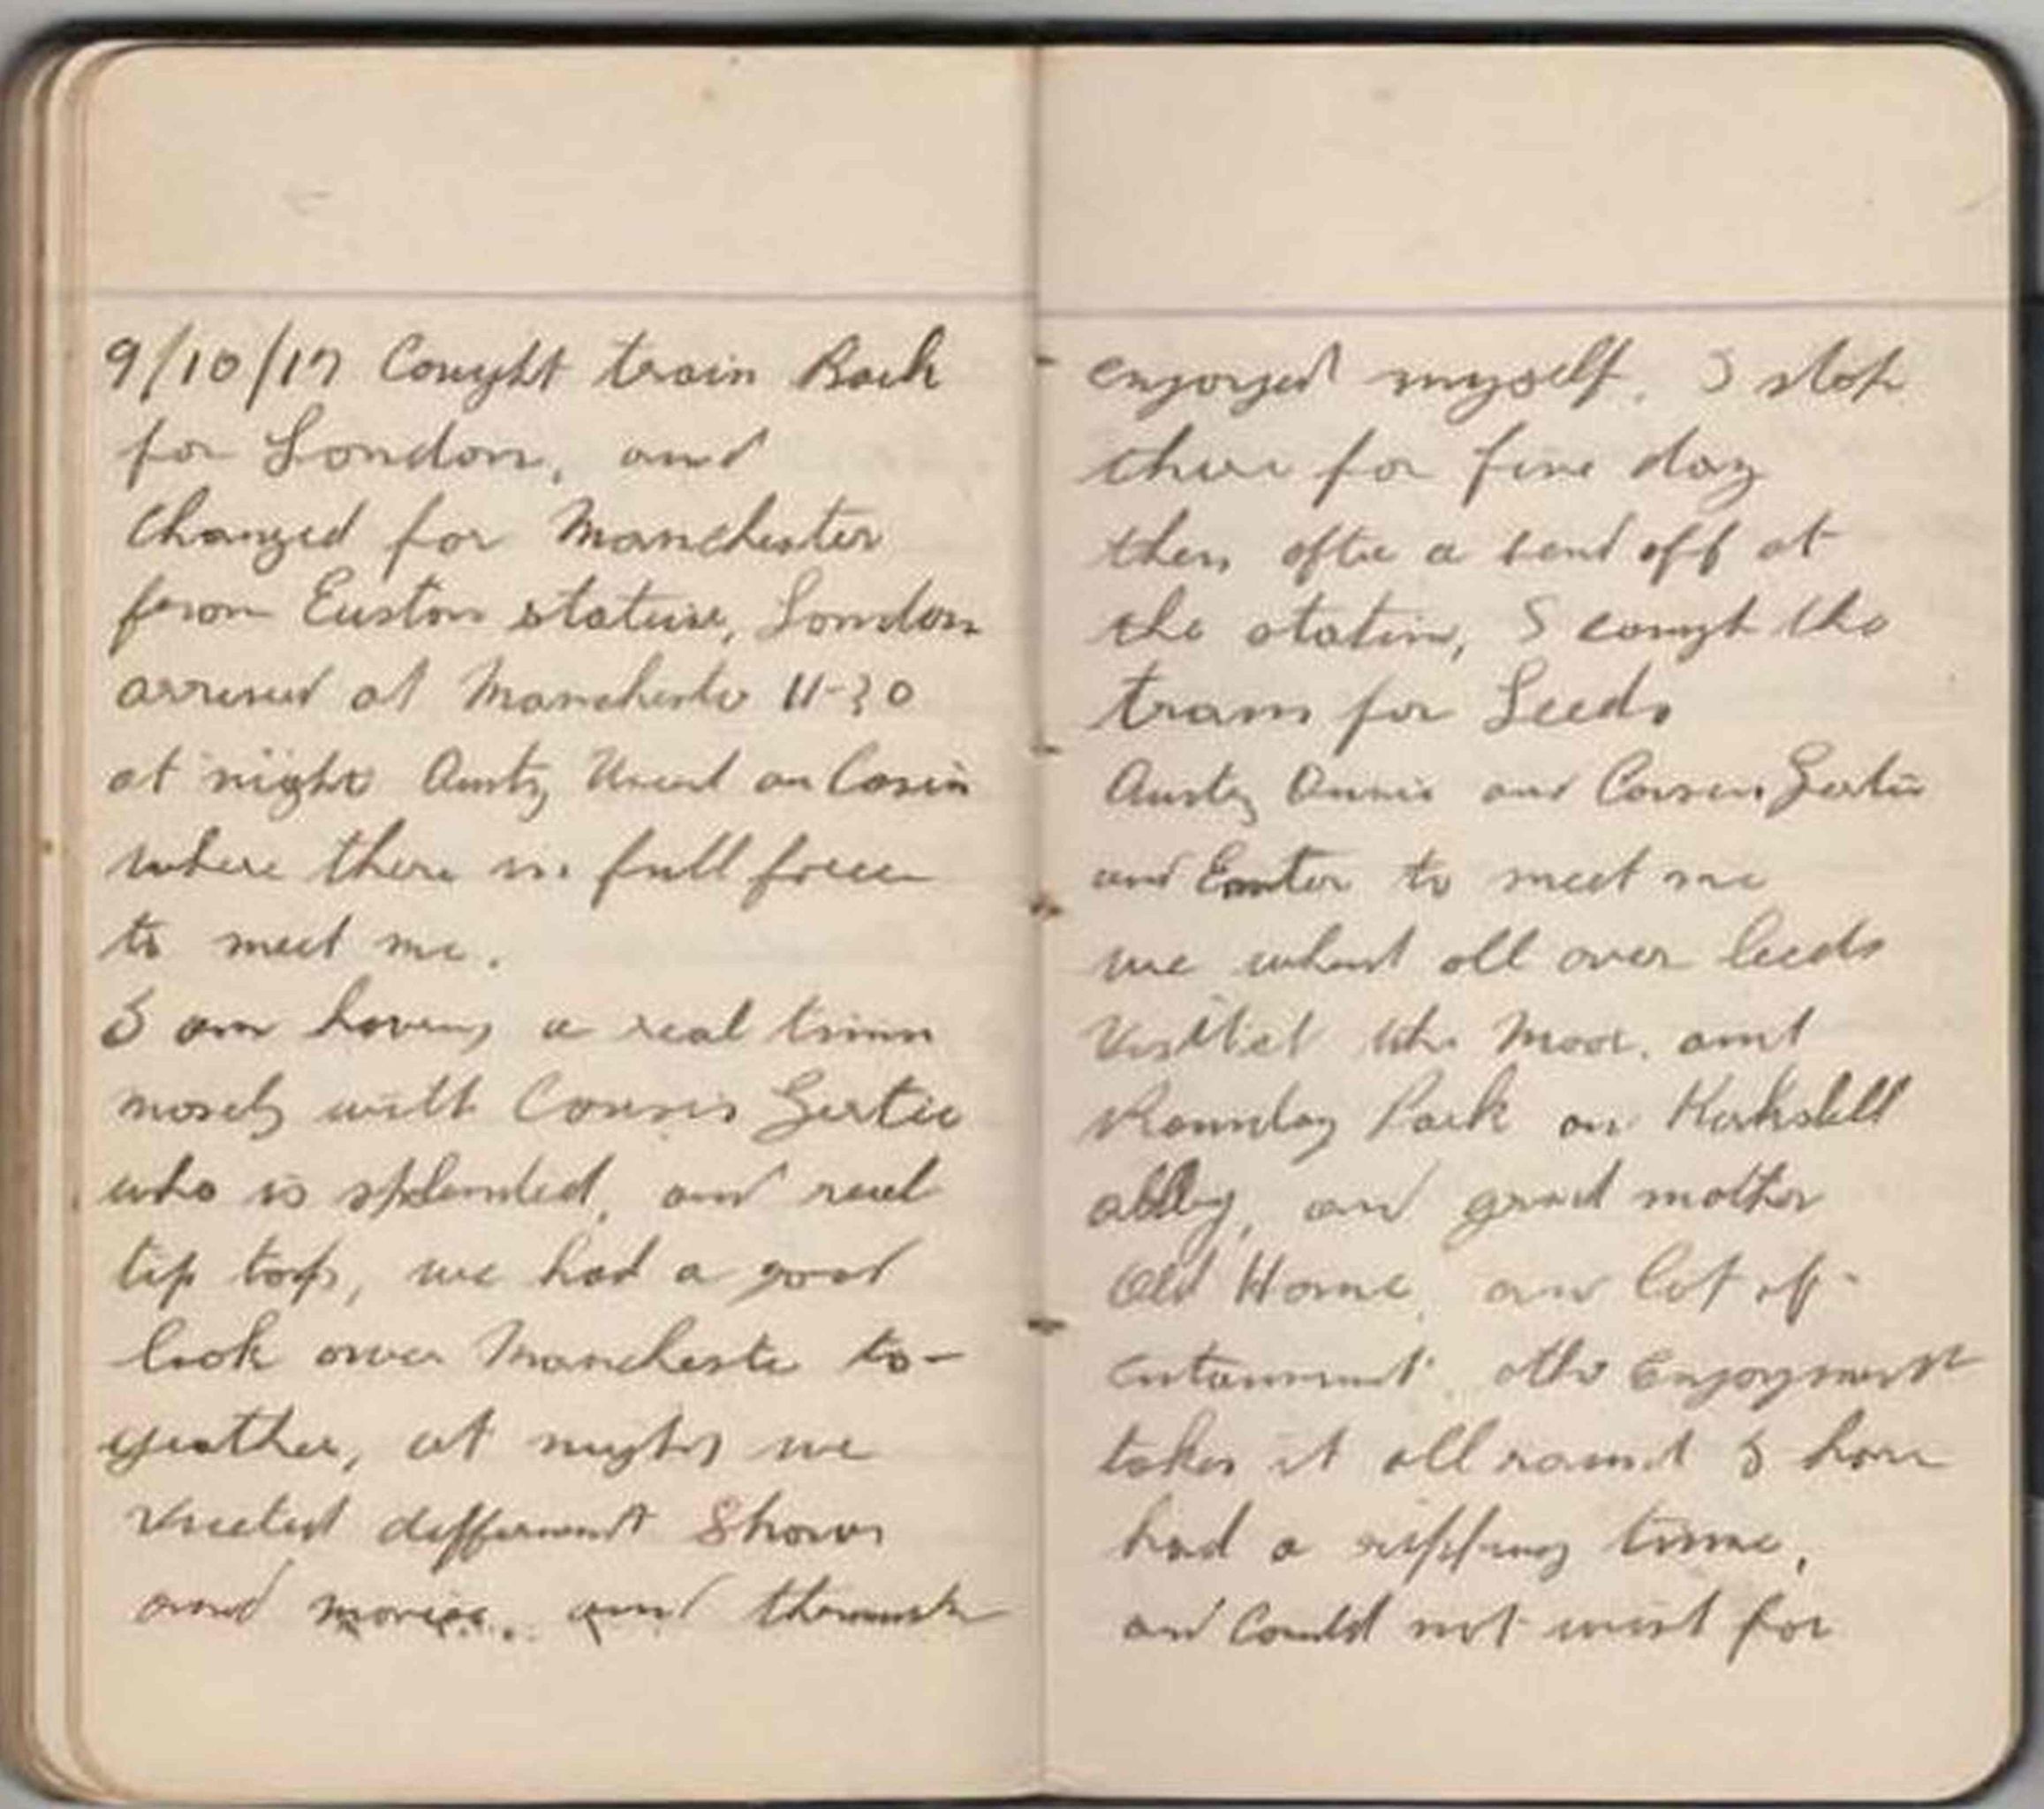 9/10/17 Cought train Back
for London, and
Changed for Manchester
from Euston station, London
arrived at Manchester 11-30
at night Aunty Uncul an Cosin
where there in full force
to meet me.
I am having a real time
mosely with Cousin Gertie
who is splended, and real
tip top, we had a good
look over Manchester to-
geather, at nights we
viseted differend Shows
and movies. and
enjoyed myself. I stop
there for five day
then after a send off at
the station, I cought the
train for Leeds
Aunty Annie and Cousin Gertie
and to meet me
we whent all over Leeds
the Moor. and
Rounday Park an Kirkstell
abbey, and grand mother
Old Home, and lot of
othe Enjoyment
takes it all round I have
had a ripping time,
and Could not wist for